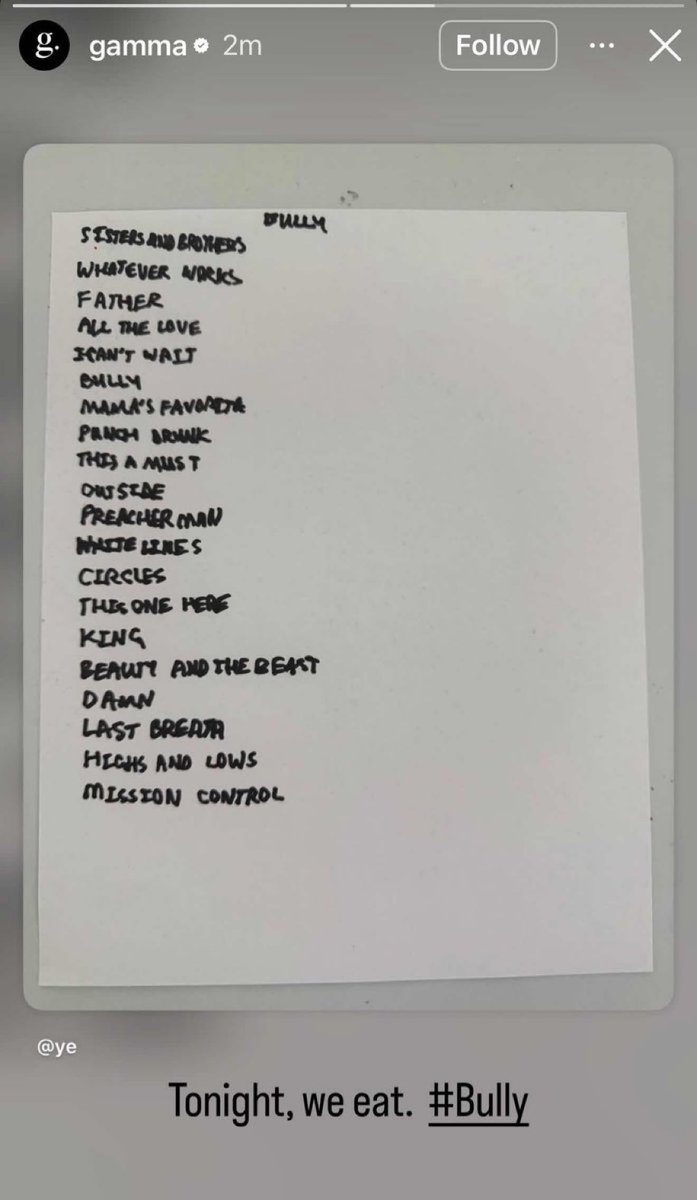 g.
gamma 2m
Follow
BULLY
SISTERS AND BROTHERS
WHATEVER WORKS
FATHER
ALL THE LOVE
I CAN'T WAIT
BULLY
MAMA'S FAVORITE
PUNCH DRUNK
THIS A MUST
OUTSIDE
PREACHER MAN
WHITE LINES
CIRCLES
THIS ONE HERE
KING
BEAUTY AND THE BEAST
DAMN
LAST BREATH
HIGHS AND LOWS
MISSION CONTROL
@ye
Tonight, we eat. #Bully